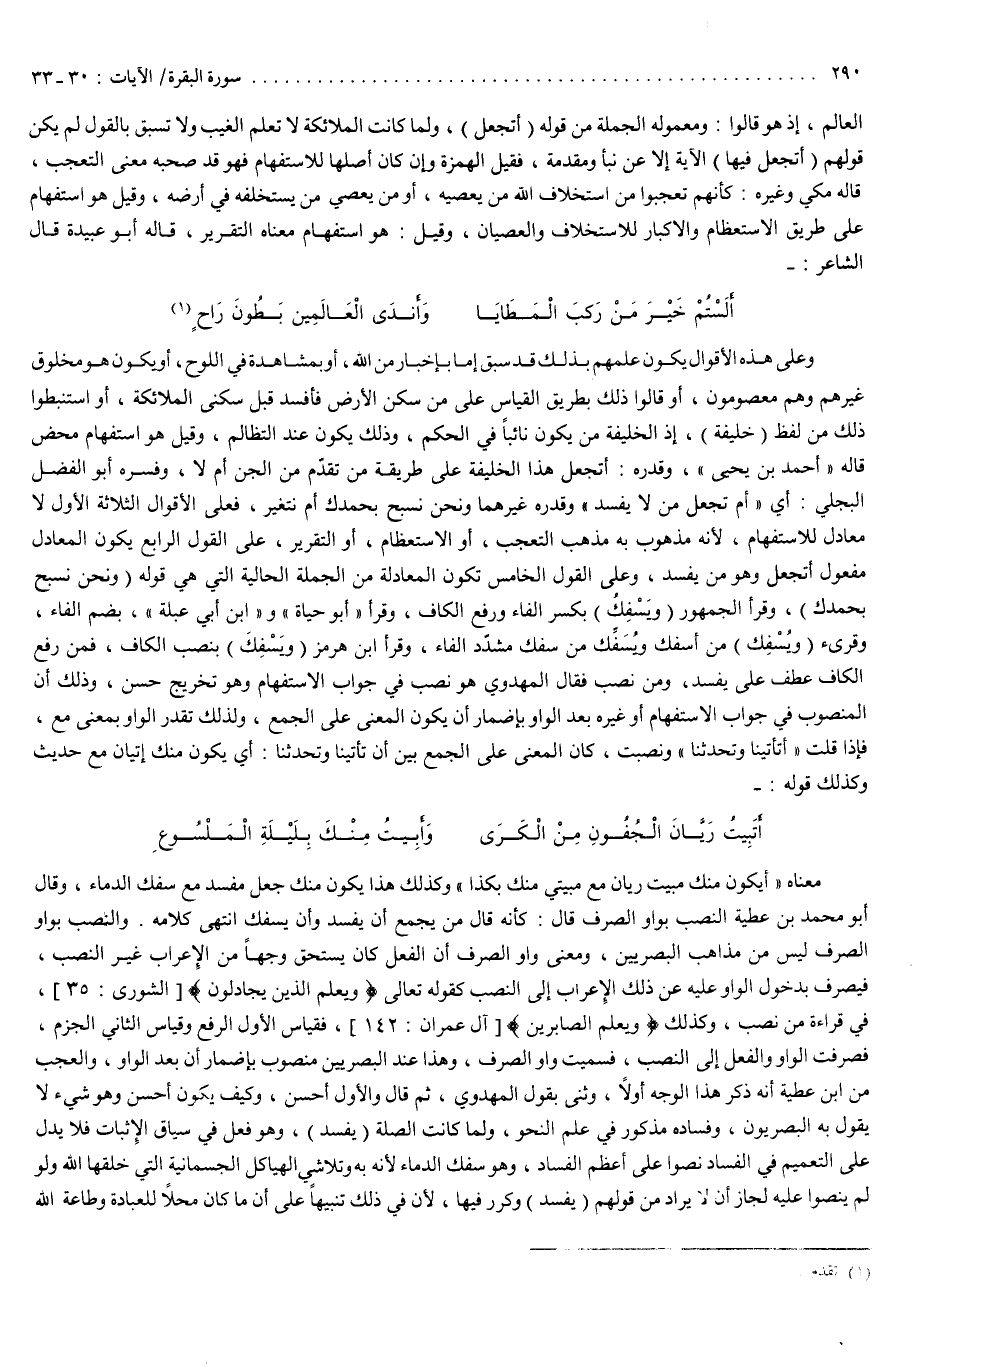 ٢٩٠ ........................................................ سورة البقرة/ الآيات : ٣٠ ـ ٣٣
العالم ، إذ هو قالوا : ومعموله الجملة من قوله ( أتجعل ) ، ولما كانت الملائكة لا تعلم الغيب ولا تسبق بالقول لم يكن
قولهم ( أتجعل فيها ) الآية إلا عن نبأ ومقدمة ، فقيل الهمزة وإن كان أصلها للاستفهام فهو قد صحبه معنى التعجب ،
قاله مكي وغيره : كأنهم تعجبوا من استخلاف الله من يعصيه ، أو من يعصي من يستخلفه في أرضه ، وقيل هو استفهام
على طريق الاستعظام والاكبار للاستخلاف والعصيان ، وقيل : هو استفهام معناه التقرير ، قاله أبو عبيدة قال
الشاعر : ـ
أَلَسْتُمْ خَيْرَ مَنْ رَكِبَ الْمَطَايَا وَأَنْدَى الْعَالَمِين بَطُونَ رَاحٍ (١)
وعلى هذه الأقوال يكون علمهم بذلك قد سبق إما بإخبار من الله ، أو بمشاهدة في اللوح ، أو يكون هو مخلوق
غيرهم وهم معصومون ، أو قالوا ذلك بطريق القياس على من سكن الأرض فأفسد قبل سكنى الملائكة ، أو استنبطوا
ذلك من لفظ ( خليفة ) ، إذ الخليفة من يكون نائباً في الحكم ، وذلك يكون عند التظالم ، وقيل هو استفهام محض
قاله « أحمد بن يحيى » ، وقدره : أتجعل هذا الخليفة على طريقة من تقدّم من الجن أم لا ، وفسره أبو الفضل
البجلي : أي « أم تجعل من لا يفسد » وقدره غيرهما ونحن نسبح بحمدك أم نتغير ، فعلى الأقوال الثلاثة الأول لا
معادل للاستفهام ، لأنه مذهوب به مذهب التعجب ، أو الاستعظام ، أو التقرير ، على القول الرابع يكون المعادل
مفعول أتجعل وهو من يفسد ، وعلى القول الخامس تكون المعادلة من الجملة الحالية التي هي قوله ( ونحن نسبح
بحمدك ) ، وقرأ الجمهور ( ويَسْفِكُ ) بكسر الفاء ورفع الكاف ، وقرأ « أبو حياة » و« ابن أبي عبلة » ، بضم الفاء ،
وقرىء ( ويُسْفِك ) من أسفك ويُسَفِّك من سفك مشدّد الفاء ، وقرأ ابن هرمز ( ويَسْفِكَ ) بنصب الكاف ، فمن رفع
الكاف عطف على يفسد، ومن نصب فقال المهدوي هو نصب في جواب الاستفهام وهو تخريج حسن ، وذلك أن
المنصوب في جواب الاستفهام أو غيره بعد الواو بإضمار أن يكون المعنى على الجمع ، ولذلك تقدر الواو بمعنى مع ،
فإذا قلت « أتأتينا وتحدثنا » ونصبت ، كان المعنى على الجمع بين أن تأتينا وتحدثنا : أي يكون منك إتيان مع حديث
وكذلك قوله : ـ
أَتَبِيتُ رَيَّانَ الْجُفُونِ مِنْ الْكَرَى وَأَبِيتُ مِنْكَ بِلَيْلَةِ الْمَلْسُوعِ
معناه « أيكون منك مبيت ريان مع مبيتي منك بكذا » وكذلك هذا يكون منك جعل مفسد مع سفك الدماء ، وقال
أبو محمد بن عطية النصب بواو الصرف قال : كأنه قال من يجمع أن يفسد وأن يسفك انتهى كلامه . والنصب بواو
الصرف ليس من مذاهب البصريين ، ومعنى واو الصرف أن الفعل كان يستحق وجهاً من الإعراب غير النصب ،
فيصرف بدخول الواو عليه عن ذلك الإعراب إلى النصب كقوله تعالى ﴿ ويعلم الذين يجادلون ﴾ [ الشورى : ٣٥ ] ،
في قراءة من نصب ، وكذلك ﴿ ويعلم الصابرين ﴾ [ آل عمران : ١٤٢ ] ، فقياس الأول الرفع وقياس الثاني الجزم ،
فصرفت الواو والفعل إلى النصب ، فسميت واو الصرف ، وهذا عند البصريين منصوب بإضمار أن بعد الواو ، والعجب
من ابن عطية أنه ذكر هذا الوجه أولاً ، وثنى بقول المهدوي ، ثم قال والأول أحسن ، وكيف يكون أحسن وهو شيء لا
يقول به البصريون ، وفساده مذكور في علم النحو ، ولما كانت الصلة ( يفسد ) ، وهو فعل في سياق الإثبات فلا يدل
على التعميم في الفساد نصوا على أعظم الفساد ، وهو سفك الدماء لأنه به وتلاشي الهياكل الجسمانية التي خلقها الله ولو
لم ينصوا عليه لجاز أن لا يراد من قولهم ( يفسد ) وكرر فيها ، لأن في ذلك تنبيهاً على أن ما كان محلاً للعبادة وطاعة الله
(١) تقدم